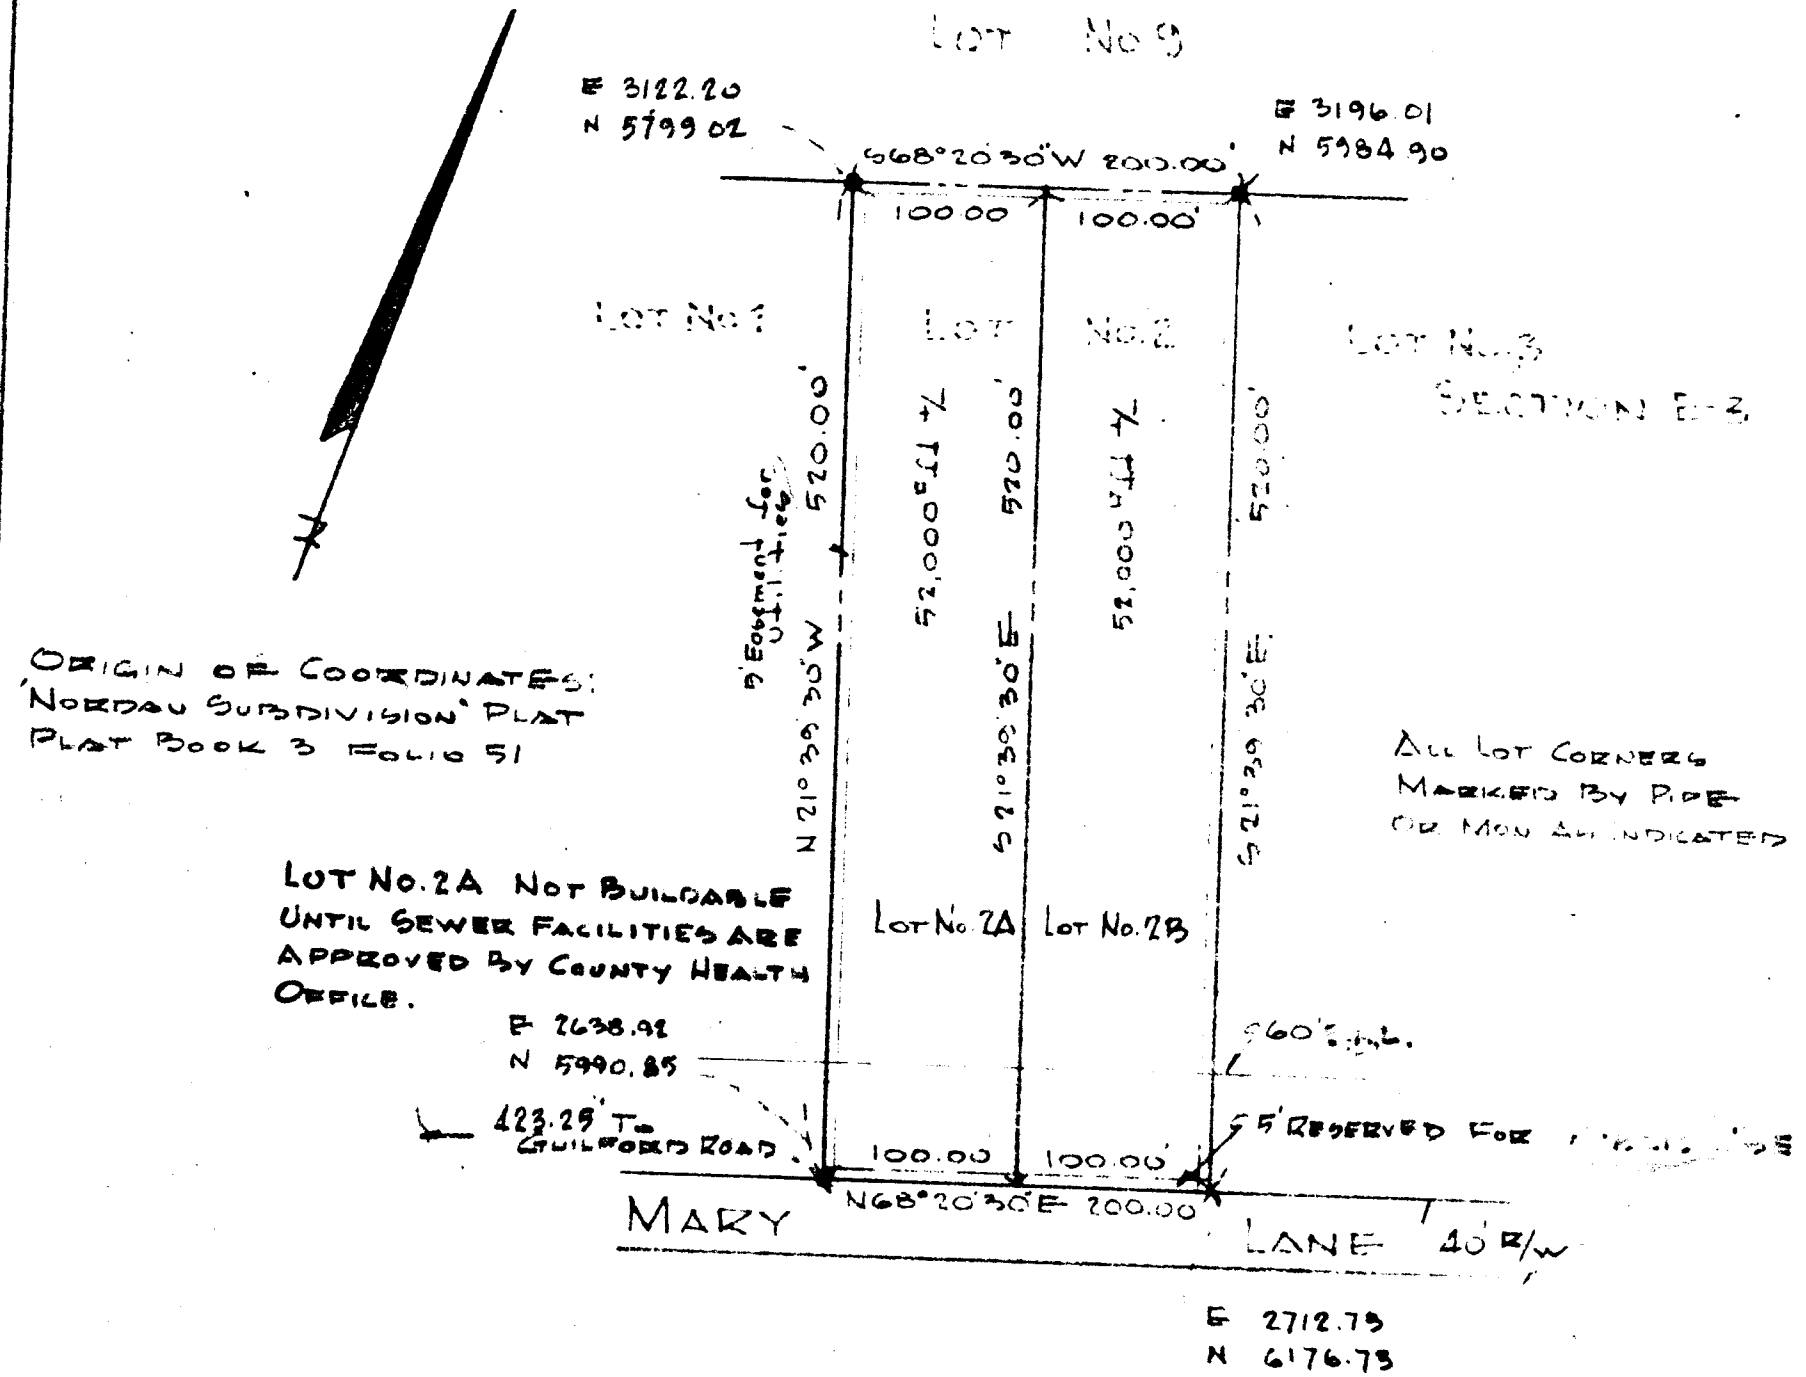 LOT No 9
E 3122.20
N 5799 02
E 3196.01
N 5984 90
S68°20'30"W 200.00'
100.00
100.00'
LOT No 1
LOT No. 2
LOT No. 3
SECTION E-3
520.00'
520.00'
520.00'
52,000 +/-
52,000 +/-
5' Easement for
Utilities
N 21° 39' 30" W
S 21° 39' 30" E
S 21° 39' 30" E
ORIGIN OF COORDINATES:
"NORDAU SUBDIVISION" PLAT
PLAT BOOK 3 FOLIO 51
ALL LOT CORNERS
MARKED BY PIPE
OR MON AS INDICATED
LOT No. 2A NOT BUILDABLE
UNTIL SEWER FACILITIES ARE
APPROVED BY COUNTY HEALTH
OFFICE.
LOT No. 2A
LOT No. 2B
E 2638.92
N 5990.85
60'
423.25' To
GUILFORD ROAD
5' RESERVED FOR
100.00
100.00'
N68°20'30"E 200.00'
MARY LANE 40' R/W
E 2712.73
N 6176.73